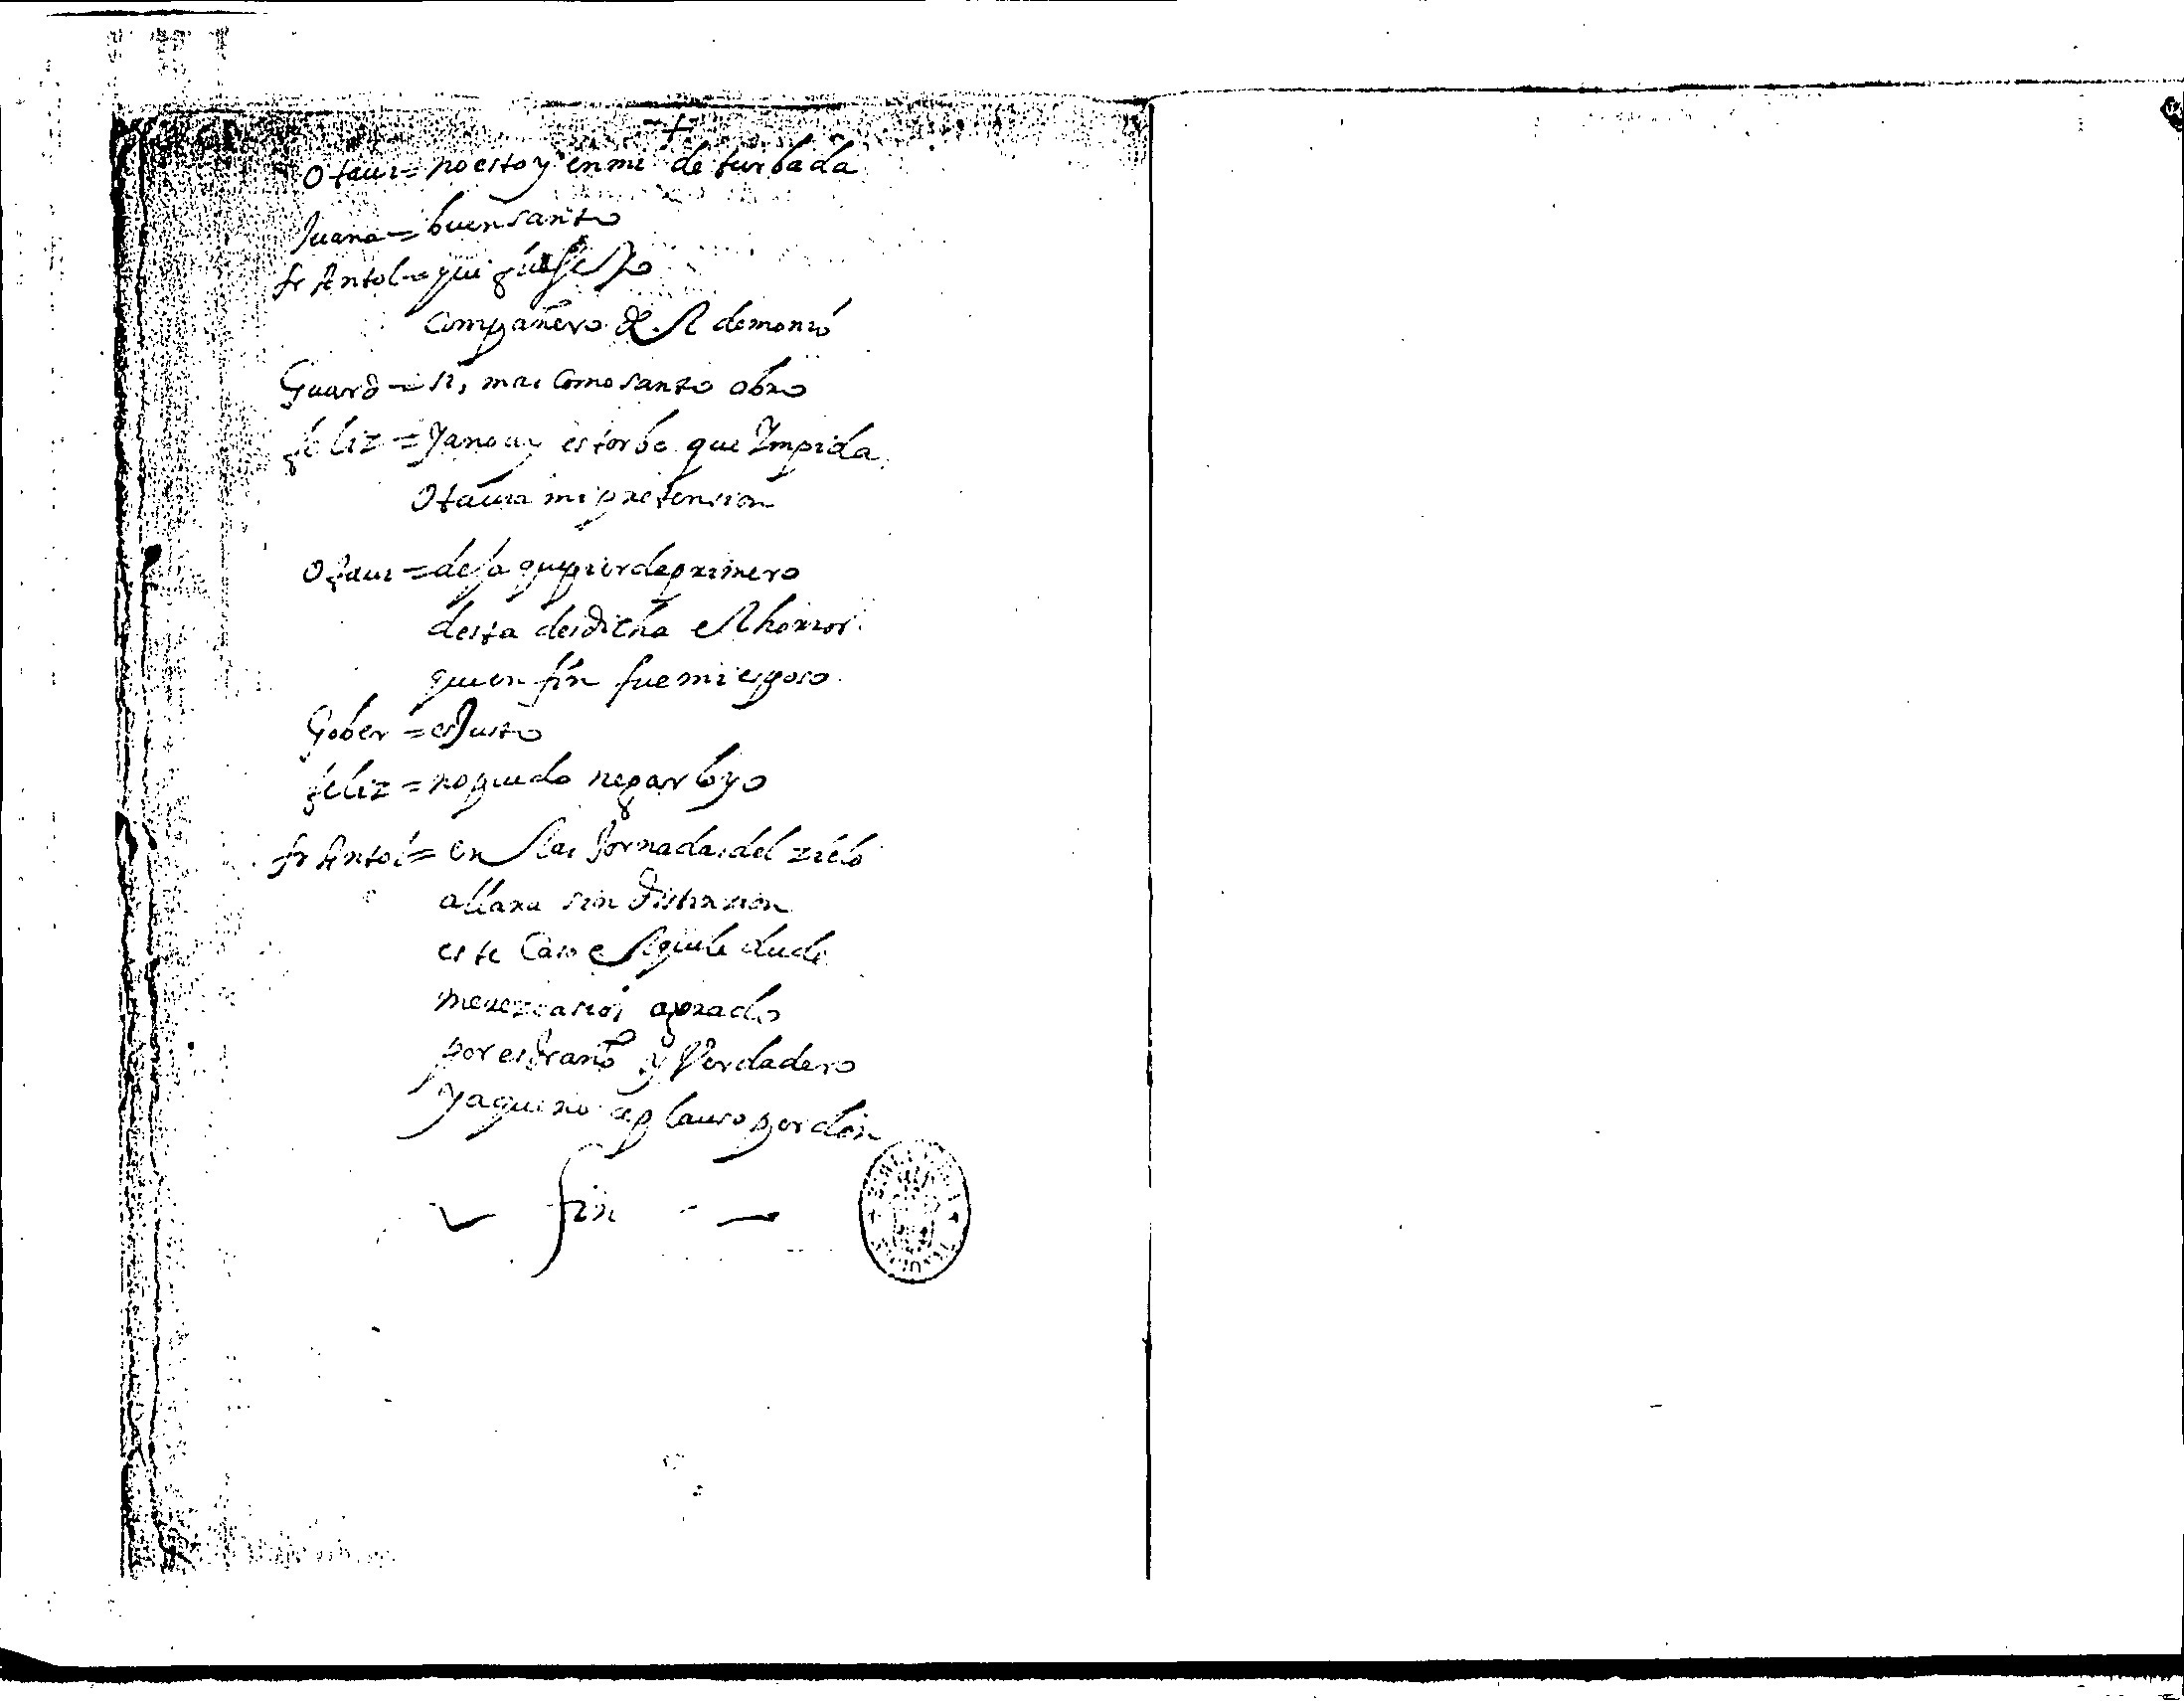 +
Otaui = no estoy en mi de turbada
Juana = buen santo
fr Antol = que fuese yo
Compañero del demonio
Guard = si, mas Como santo obro
feliz = Ya no ay estorbo que Ympida
Otauia mi pretension
Otaui = deja que pierda primero
desta desdicha el horror
que en fin fue mi esposo
Gober = es Justo
feliz = no puedo negarlo yo
fr Antol = en las Jornadas del zielo
allara sin distinzion
este Caso el que le dude
merezca si os agrado
por estraño y Verdadero
Ya que no aplauso perdon
fin